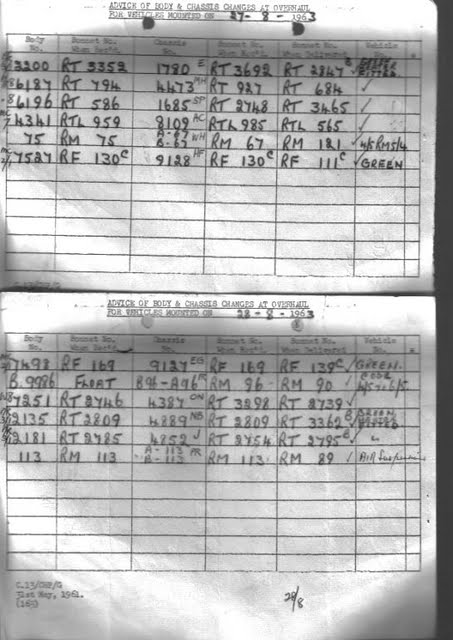 ADVICE OF BODY & CHASSIS CHANGES AT OVERHAUL
FOR VEHICLES MOUNTED ON 27-8-1963
Body No. Bonnet No. When Rec'd. Chassis No. Bonnet No. When Rec'd. Bonnet No. When Delivered Vehicle No.
3200 RT 3352 1780 E RT 3692 RT 2847 B
6187 RT 794 4473 MH RT 927 RT 684 ✓
6196 RT 586 1685 SP RT 2748 RT 3465 ✓
4341 RTL 959 8109 AC RTL 985 RTL 565 ✓
75 RM 75 A-67 B-67 WH RM 67 RM 121 ✓ 4/5 RM5/4
7527 RF 130 C 9128 HF RF 130 C RF 111 C ✓ GREEN
ADVICE OF BODY & CHASSIS CHANGES AT OVERHAUL
FOR VEHICLES MOUNTED ON 28-8-1963
Body No. Bonnet No. When Rec'd. Chassis No. Bonnet No. When Rec'd. Bonnet No. When Delivered Vehicle No.
7498 RF 169 9127 EG RF 169 RF 139 C ✓ GREEN.
B.9986 FLOAT B96-A96 RM 96 - RM 90 ✓ CODE 4/5 to 6/5
7251 RT 2746 4387 ON RT 3298 RT 2739 ✓
2135 RT 2809 4889 NB RT 2809 RT 3362 B GREEN
2181 RT 2785 4852 J RT 2754 RT 2795 B ✓ "
113 RM 113 A-113 B-113 PR RM 113 RM 89 ✓ Air Suspension
C.13/GHP/G
31st May, 1961.
(163)
28/8